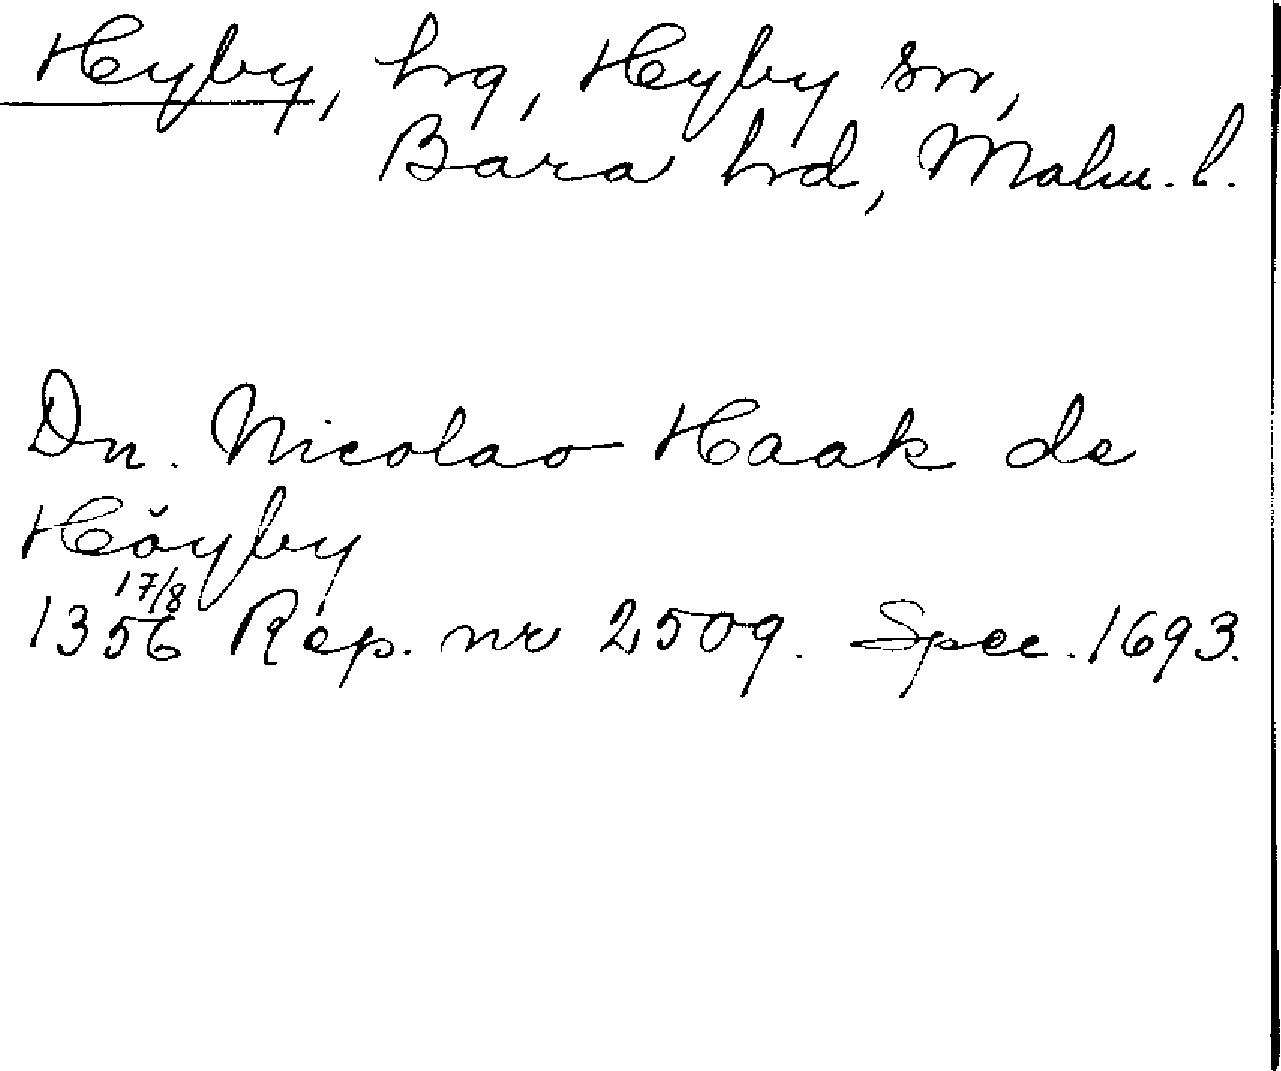 Hyby, hg, Hyby sn,
Bara hd, Malm. l.
Dn. Nicolao Haak de
Hŏyby
1356 17/8 Rep. nr 2509. Spec. 1693.